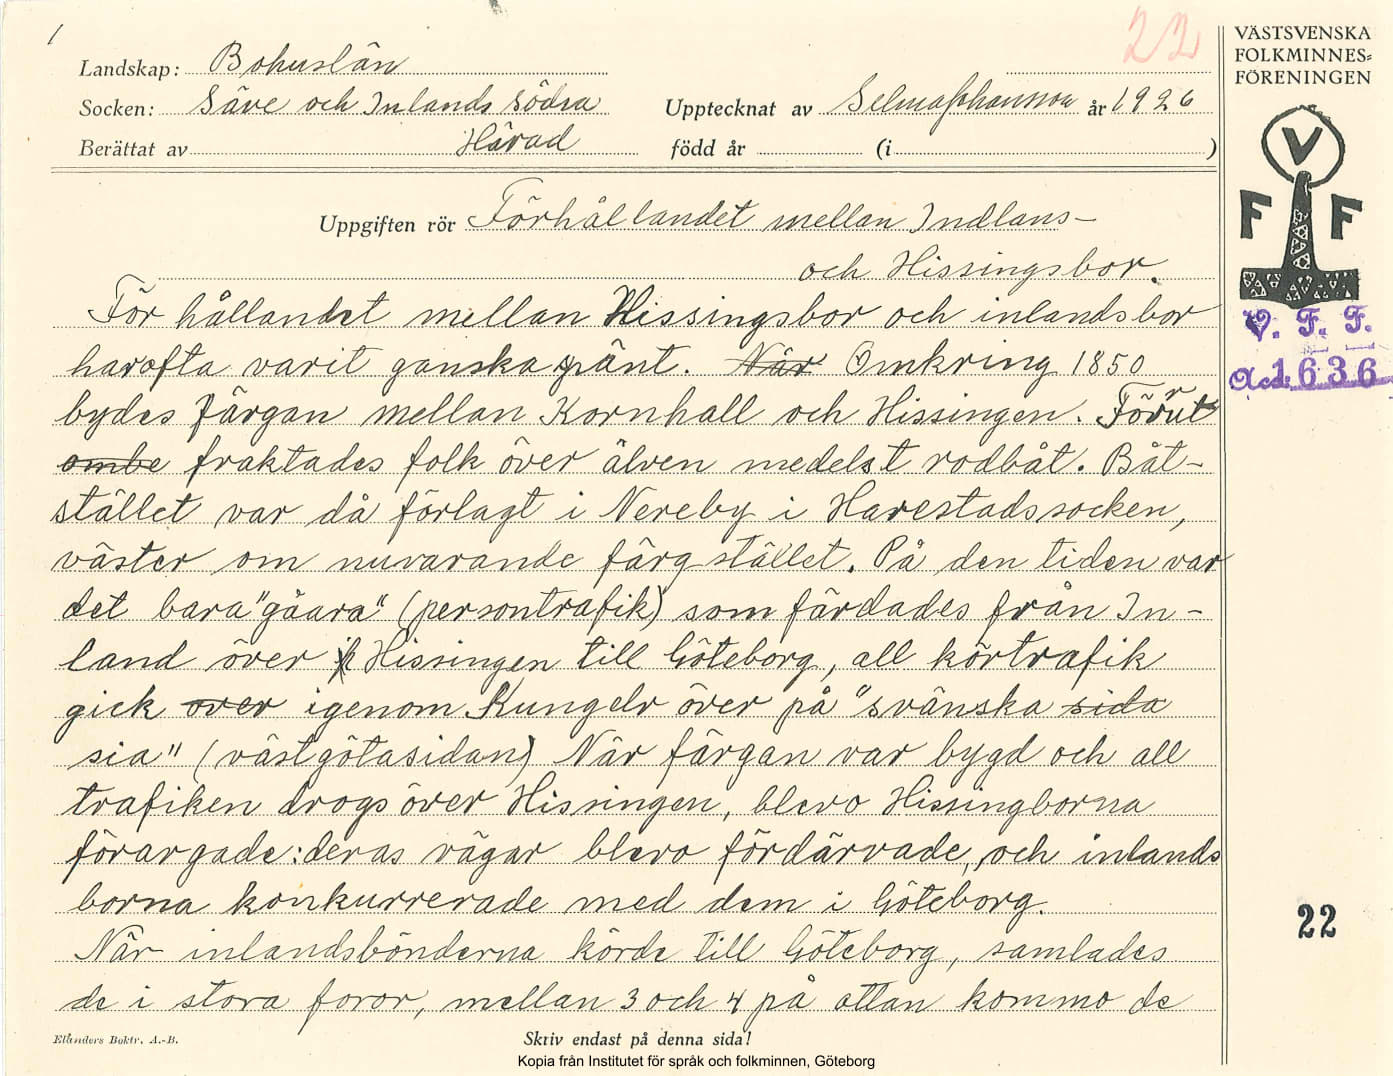 1
22
Landskap: Bohuslän
Socken: Säve och Inlands Södra
Upptecknat av Selma Johansson år 1926
Berättat av Härad
född år (i )
Uppgiften rör Förhållandet mellan Indlans-
och Hissingsbor.
För hållandet mellan Hissingsbor och inlandsbor
harofta varit ganska spänt. När Omkring 1850
bydes färgan mellan Kornhall och Hissingen. Förrut
ombe fraktades folk över älven medelst rodbåt. Båt-
stället var då förlagt i Nereby i Harestadssocken,
väster om nuvarande färgstället. På den tiden var
det bara "gåara" (persontrafik) som färdades från In-
land över Hissingen till Göteborg, all körtrafik
gick över igenom Kungelv över på "svänska sida
sia" (västgötasidan) När färgan var bygd och all
trafiken drogs över Hissingen, blevo Hissingborna
förargade: deras vägar blevo fördärvade, och inlands
borna konkurrerade med dem i Göteborg.
När inlandsbönderna körde till Göteborg, samlades
de i stora foror, mellan 3 och 4 på ottan kommo de
Elanders Boktr. A.-B.
Skriv endast på denna sida!
Kopia från Institutet för språk och folkminnen, Göteborg
VÄSTSVENSKA
FOLKMINNES=
FÖRENINGEN
V
F F
V. F. F.
Acc. 1636
22